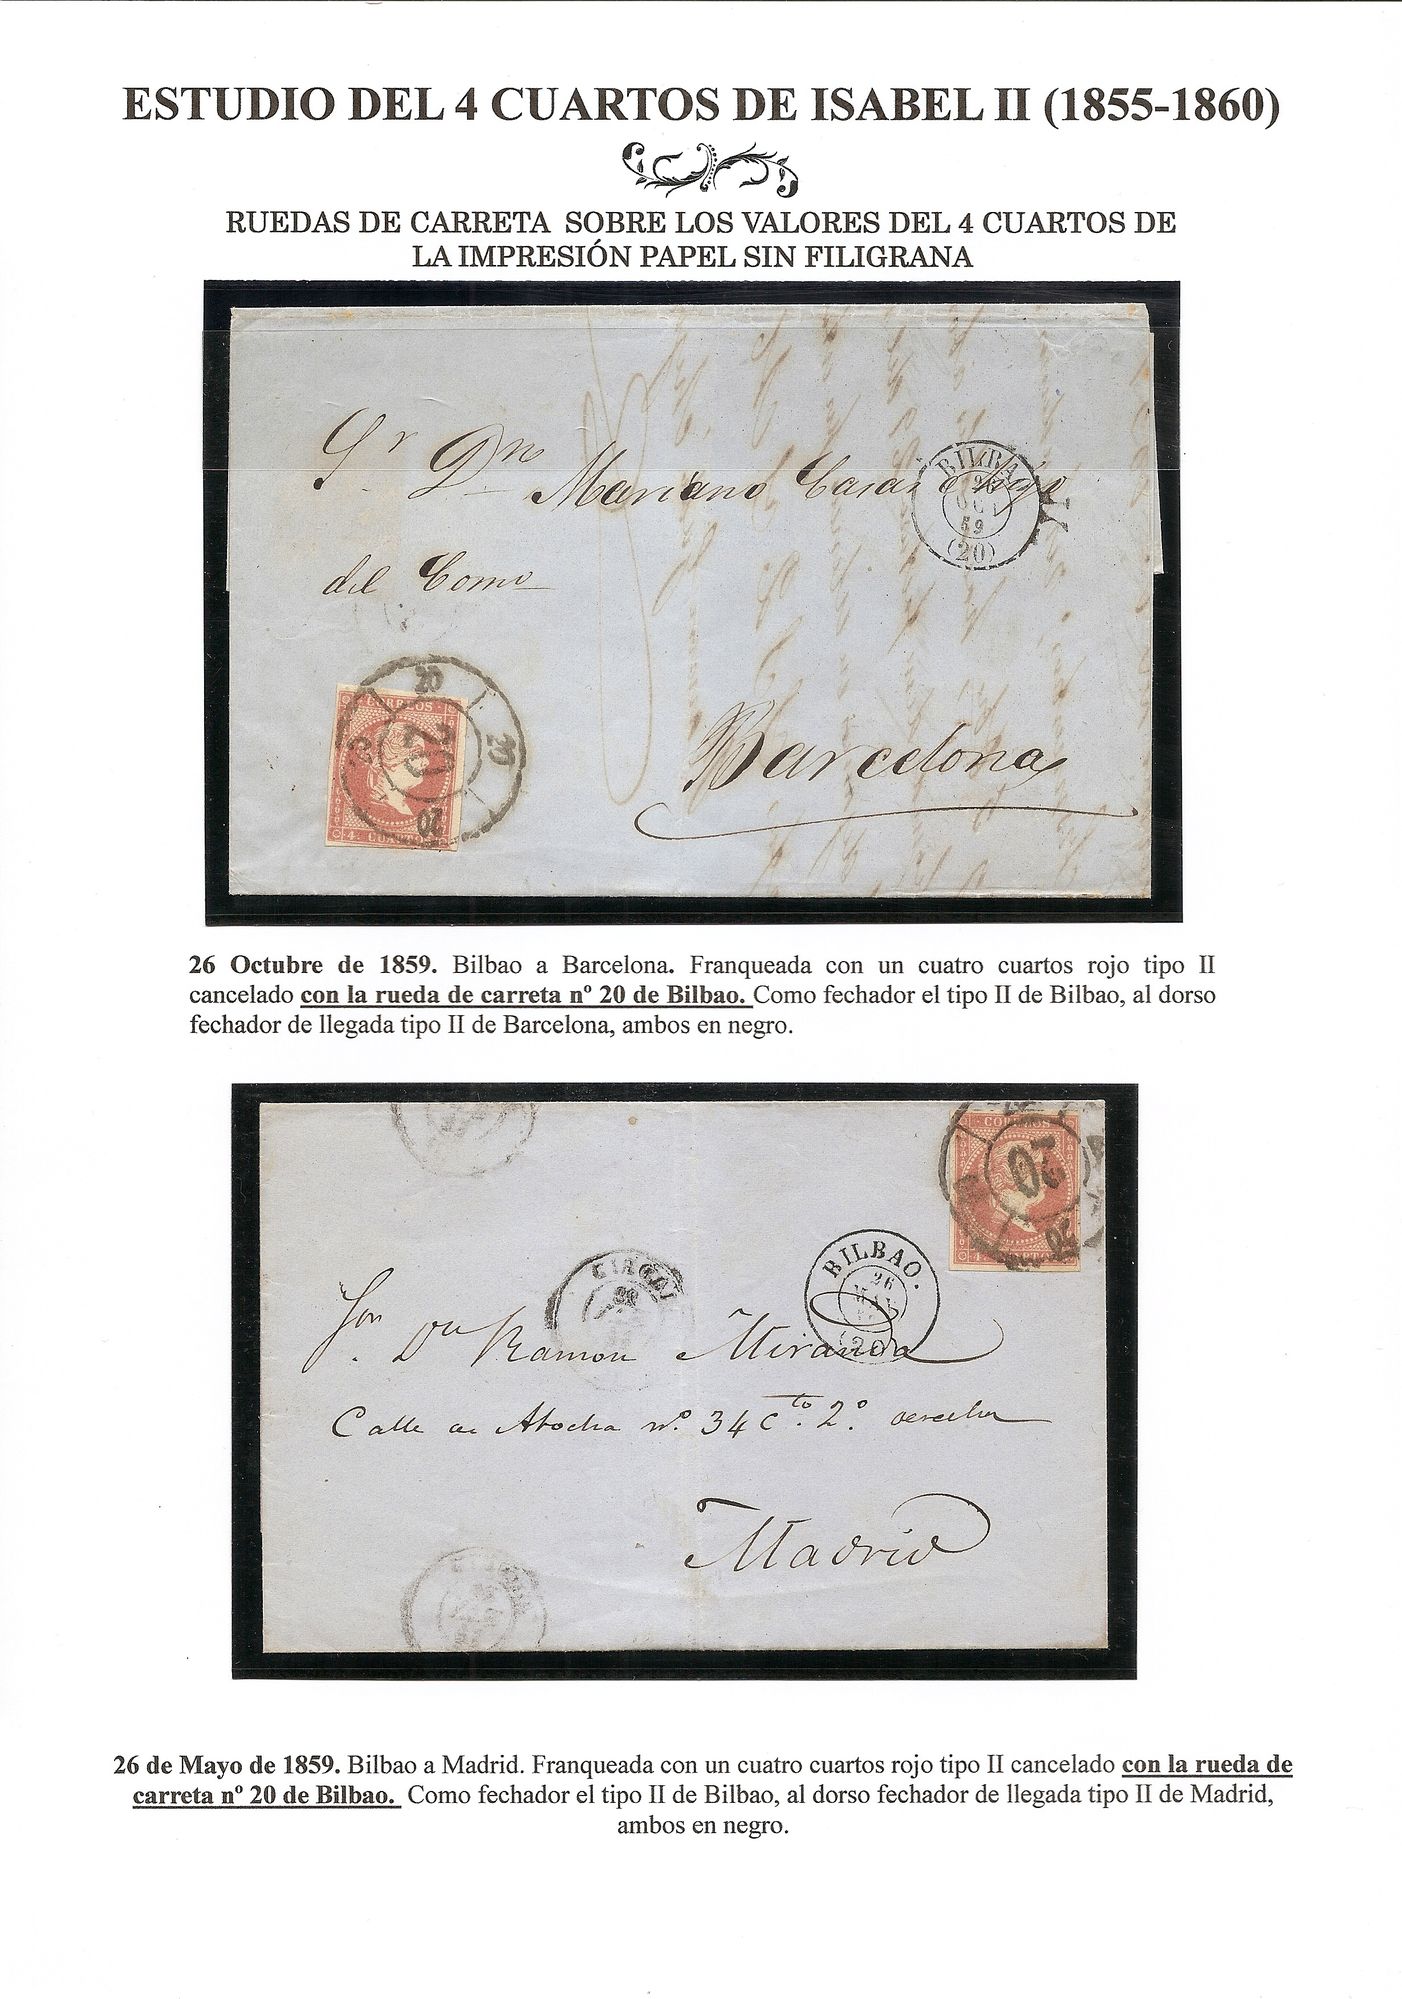 ESTUDIO DEL 4 CUARTOS DE ISABEL II (1855-1860)
RUEDAS DE CARRETA SOBRE LOS VALORES DEL 4 CUARTOS DE
LA IMPRESIÓN PAPEL SIN FILIGRANA
Sr Dn Mariano Casas e hijo
BILBAO
26
OCT
59
(20)
del Como
20
20
20
20
CORREOS
4 CUARTOS
Barcelona
26 Octubre de 1859. Bilbao a Barcelona. Franqueada con un cuatro cuartos rojo tipo II
cancelado con la rueda de carreta nº 20 de Bilbao. Como fechador el tipo II de Bilbao, al dorso
fechador de llegada tipo II de Barcelona, ambos en negro.
CORREOS
20
20
BILBAO.
26
MAY
(20)
Dn Ramon Miranda
Calle de Atocha nº 34 cto. 2º
Madrid
26 de Mayo de 1859. Bilbao a Madrid. Franqueada con un cuatro cuartos rojo tipo II cancelado con la rueda de
carreta nº 20 de Bilbao. Como fechador el tipo II de Bilbao, al dorso fechador de llegada tipo II de Madrid,
ambos en negro.